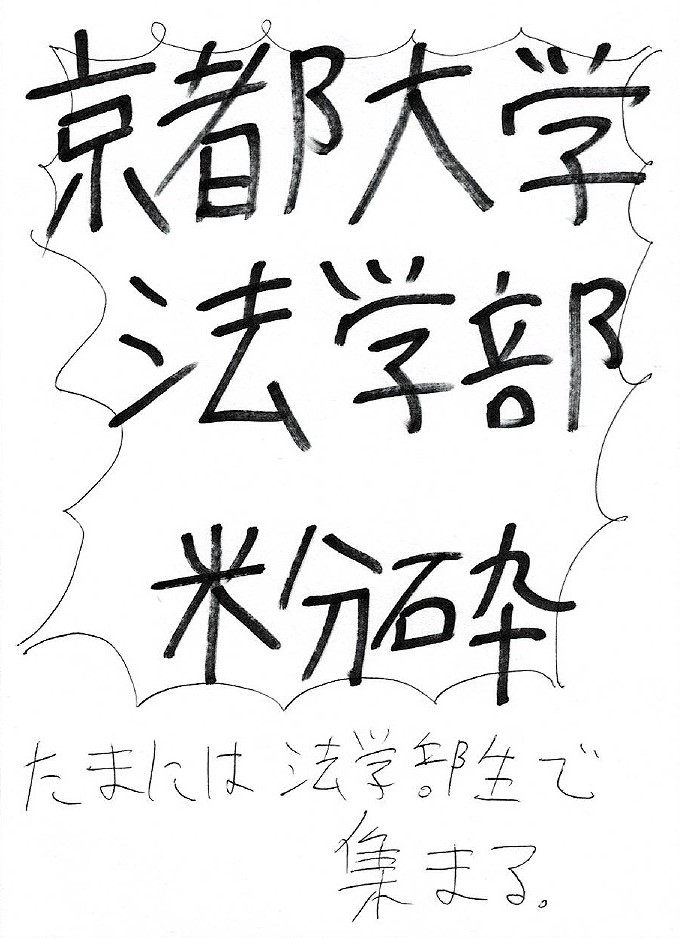 京都大学
法学部
粉砕
たまには法学部生で
集まる。